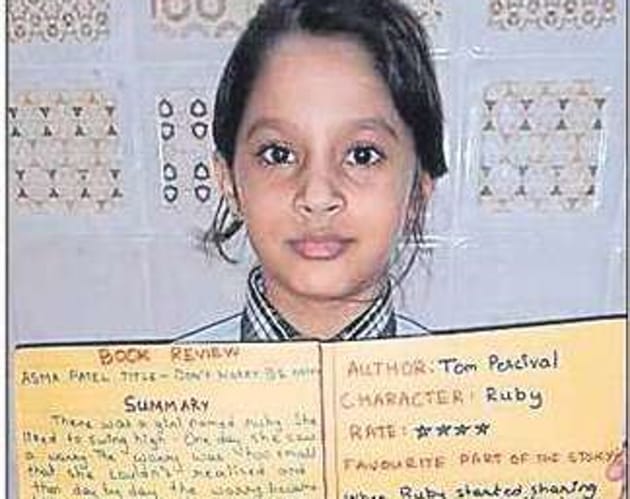 BOOK REVIEW
ASMA PATEL TITLE - DON'T WORRY BE
SUMMARY
There was a girl named ruby. She
used to swing high. One day she saw
a worry. The worry was too small
that she couldn't realised and
day by day the worry became
AUTHOR: Tom Percival
CHARACTER: Ruby
RATE: ☆☆☆☆
FAVOURITE PART OF THE STORY
When Ruby started sharing